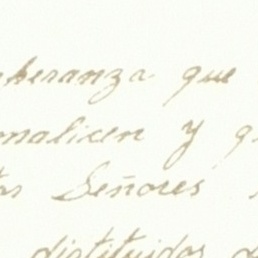 speranza que
onalicen y q
tos Señores
distituidos d